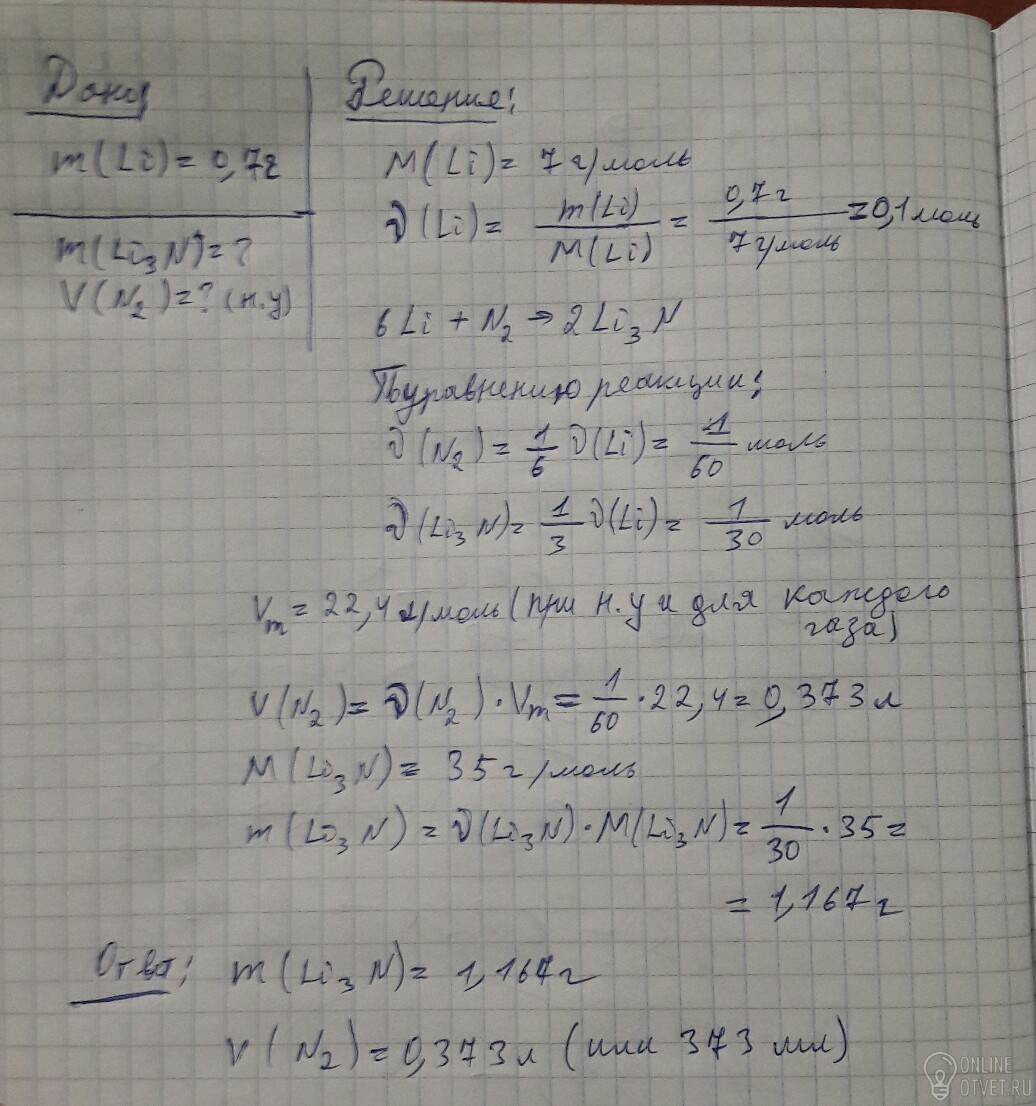 Дано:
m(Li)= 0,7г
m(Li₃N)=?
V(N₂)=? (н.у)
Решение:
M(Li)= 7 г/моль
ν(Li)= m(Li)/M(Li) = 0,7г/7г/моль =0,1моль
6Li + N₂ → 2Li₃N
По уравнению реакции:
ν(N₂)= 1/6 ν(Li)= 1/60 моль
ν(Li₃N)= 1/3 ν(Li)= 1/30 моль
Vm = 22,4 л/моль (при н.у и для каждого
газа)
V(N₂)= ν(N₂)·Vm = 1/60 · 22,4 = 0,373 л
M(Li₃N)= 35 г/моль
m(Li₃N) = ν(Li₃N)·M(Li₃N)= 1/30 · 35 =
= 1,167 г
Ответ: m(Li₃N)= 1,167г
V(N₂)=0,373л (или 373 мл)
ONLINE
OTVET.RU